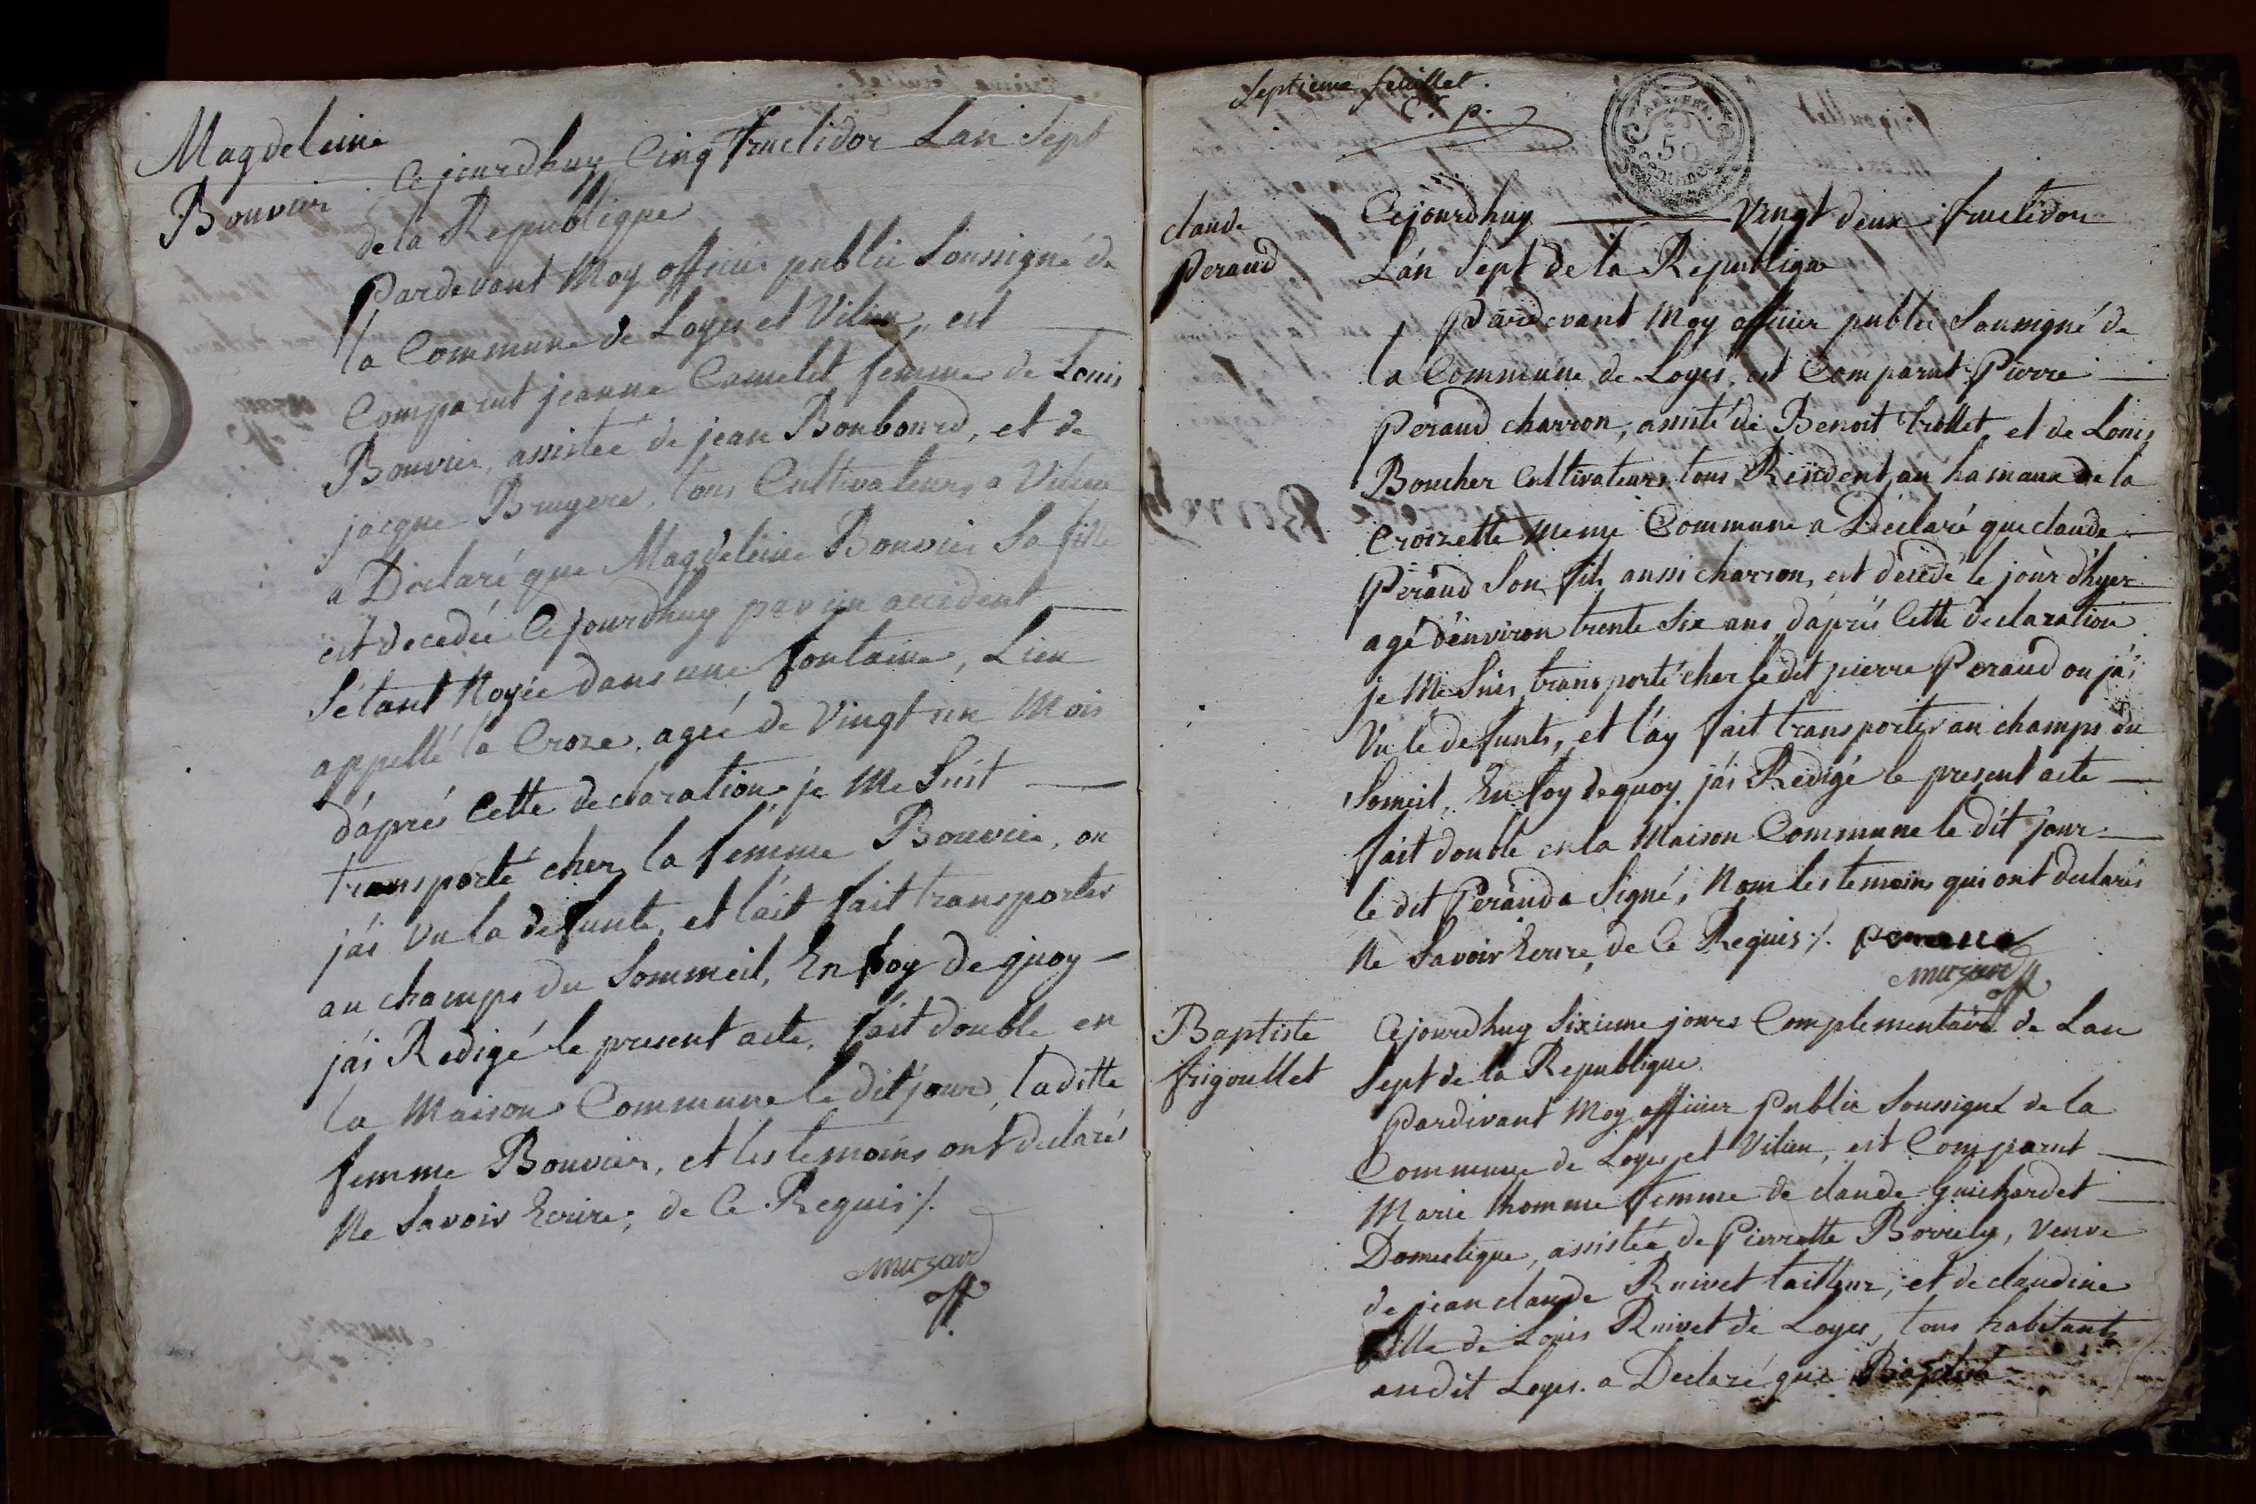 Magdeleine
Bouvier
Cejourdhuy Cinq fructidor Lan Sept
de la Republique
Pardevant Moy officier public Soussigné de
la Commune de Loyes et Vilieu, est
Comparut jeanne Camelet femme de Louis
Bouvier, assistée de jean Bonbourd, et de
jacque Bruyere, tous Cultivateurs a Vilieu
a Déclaré que Magdeleine Bouvier Sa fille
est decedée Cejourdhuy par un accident
S'étant Noyée dans une fontaine, Lieu
appellé la Croze, agée de Vingt un Mois
d'aprés Cette declaration, je Me Suit
transporté cher la femme Bouvier, ou
j'ai Vu la defunte, et l'ait fait transporter
au champs du Sommeil, En foy de quoy
j'ai Redigé le present acte, fait double en
la Maison Commune le dit jour, la ditte
femme Bouvier, et les temoins ont declarés
Ne Savoir Ecrire, de Ce Requis ./.
muzard
Septieme feuillet.
C. P.
50
centimes
claude
Peraud
Cejourdhuy Vingt deux fructidor
L'an Sept de la Republique
Pardevant Moy officier public Soussigné de
la Commune de Loyes, est Comparut Pierre
Peraud charron, assisté de Benoit trollet, et de Louis
Boucher Cultivateurs, tous Resident au hamaux de la
Croizette Meme Commune a Déclaré que claude
Peraud Son fils aussi charron, est décédé le jour d'hyer
agé d'environ trente Six ans, d'aprés Cette declaration
je Me Suis transporté cher le dit pierre Peraud ou j'ai
Vu le defunts, et l'ay fait transporter au champs du
Someil. En foy de quoy j'ai Redigé le present acte
fait double en la Maison Commune le dit jour
le dit Peraud a Signé, Nom les temoins qui ont declarés
Ne Savoir Ecrire, de Ce Requis ./. peraud
muzard
Baptiste
frigoullet
Cejourdhuy Sixieme jours Complementaire de Lan
Sept de la Republique.
Pardevant Moy officier Public Soussigné de la
Commune de Loyes et Vilieu, est Comparut
Marie thomme femme de claude Guichardet
Domestique, assistée de Pierrette Borrely, Veuve
de jean claude Ruivet tailleur, et de claudine
fille de Louis Ruivet de Loyes, tous habitants
au dit Loyes. a Declaré que Baptiste